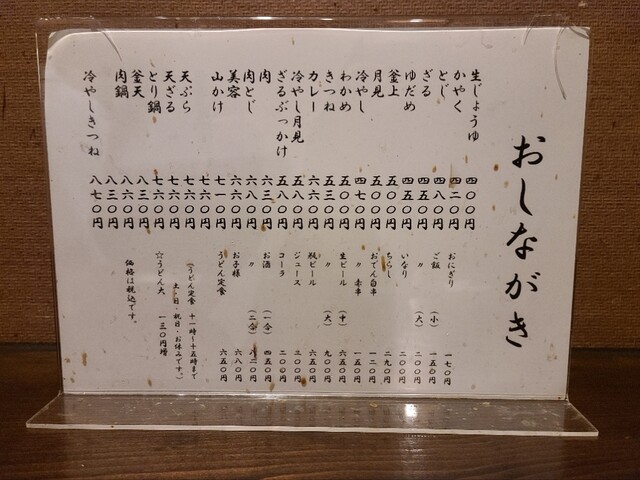 おしながき
生じょうゆ 四〇〇円
かやく 四二〇円
とじ 四八〇円
ざる 四五〇円
ゆだめ 四五〇円
釜上 五〇〇円
月見 五〇〇円
冷やし 四七〇円
わかめ 五〇〇円
きつね 五三〇円
カレー 六六〇円
冷やし月見 五八〇円
ざるぶっかけ 五八〇円
肉 六三〇円
肉とじ 六八〇円
美容 六六〇円
山かけ 七一〇円
天ぷら 七六〇円
天ざる 七六〇円
とり鍋 七六〇円
釜天 八三〇円
肉鍋 八六〇円
冷やしきつね 八七〇円
おにぎり 一七〇円
ご飯 (小) 一五〇円
〃 (大) 二〇〇円
いなり 二〇〇円
ちらし 二九〇円
おでん白串 一二〇円
〃 赤串 一五〇円
生ビール (中) 六五〇円
〃 (大) 九〇〇円
瓶ビール 六五〇円
ジュース 二〇〇円
コーラ 二〇〇円
お酒 (一合) 四五〇円
〃 (二合) 八二〇円
お子様 六八〇円
うどん定食 六五〇円
(うどん定食 十一時〜十五時まで
土・日・祝日・お休みです。)
☆うどん大 一三〇円増
価格は税込です。